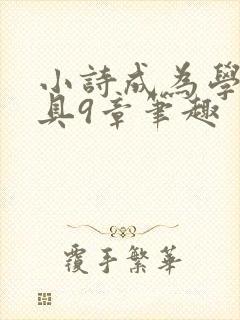 小詩成為學
具9章筆趣
覆手繁華